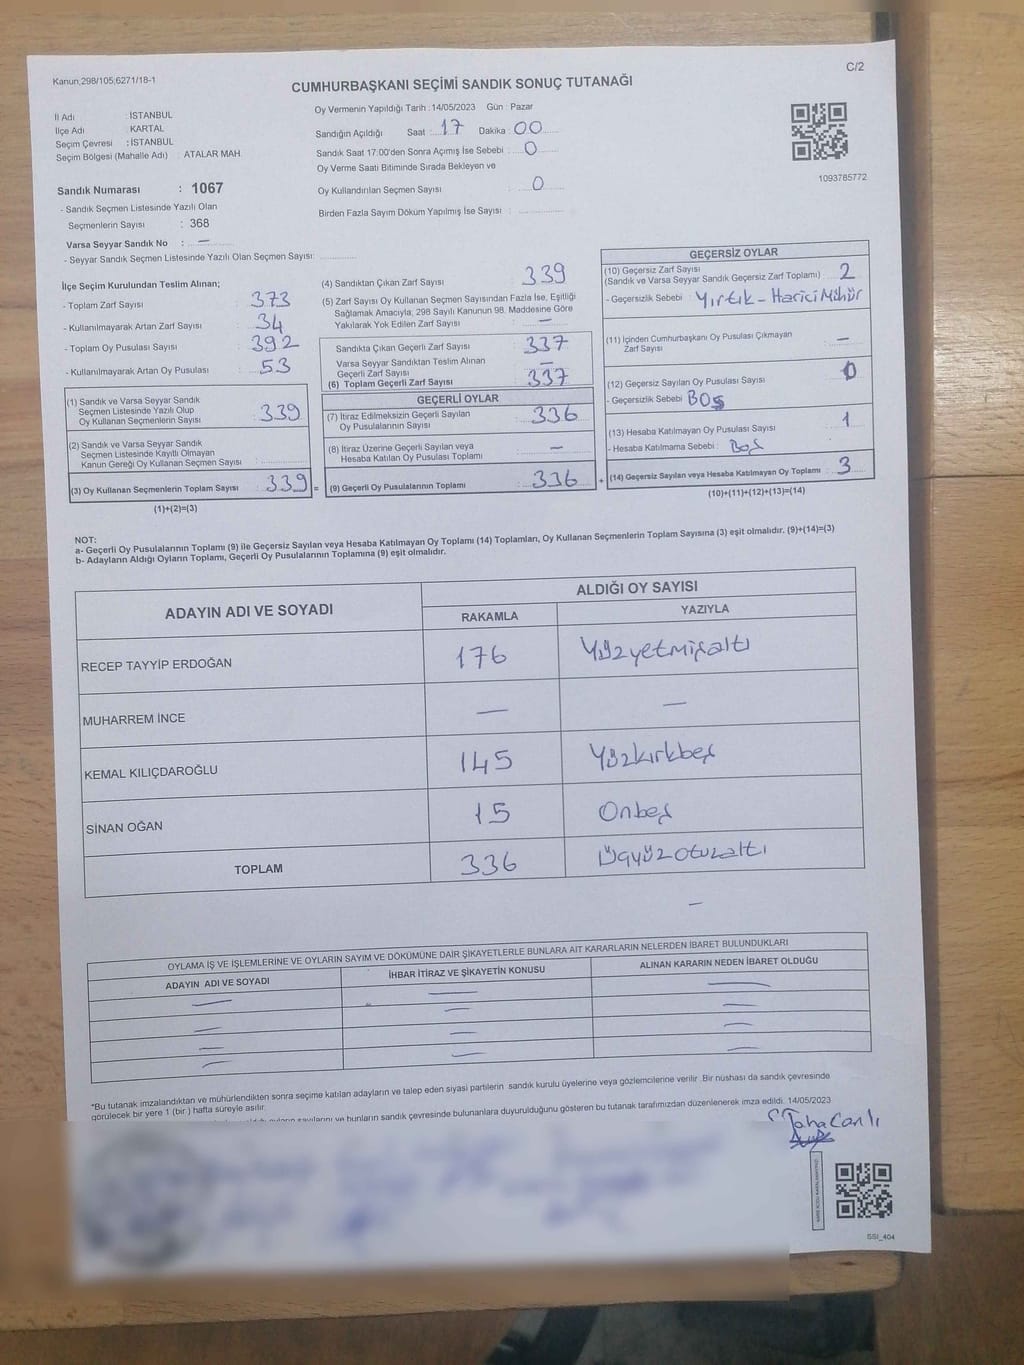 Kanun,298/105;6271/18-1
C/2
CUMHURBAŞKANI SEÇİMİ SANDIK SONUÇ TUTANAĞI
İl Adı : İSTANBUL
İlçe Adı : KARTAL
Seçim Çevresi : İSTANBUL
Seçim Bölgesi (Mahalle Adı) : ATALAR MAH.
Sandık Numarası : 1067
- Sandık Seçmen Listesinde Yazılı Olan
Seçmenlerin Sayısı : 368
Varsa Seyyar Sandık No : —
- Seyyar Sandık Seçmen Listesinde Yazılı Olan Seçmen Sayısı:
Oy Vermenin Yapıldığı Tarih : 14/05/2023 Gün : Pazar
Sandığın Açıldığı Saat : 17 Dakika : 00
Sandık Saat 17:00'den Sonra Açımış İse Sebebi : 0
Oy Verme Saati Bitiminde Sırada Bekleyen ve
Oy Kullandırılan Seçmen Sayısı : 0
Birden Fazla Sayım Döküm Yapılmış İse Sayısı :
1093785772
İlçe Seçim Kurulundan Teslim Alınan;
- Toplam Zarf Sayısı : 373
- Kullanılmayarak Artan Zarf Sayısı : 34
- Toplam Oy Pusulası Sayısı : 392
- Kullanılmayarak Artan Oy Pusulası : 53
(1) Sandık ve Varsa Seyyar Sandık
Seçmen Listesinde Yazılı Olup
Oy Kullanan Seçmenlerin Sayısı : 339
(2) Sandık ve Varsa Seyyar Sandık
Seçmen Listesinde Kayıtlı Olmayan
Kanun Gereği Oy Kullanan Seçmen Sayısı :
(3) Oy Kullanan Seçmenlerin Toplam Sayısı : 339 =
(1)+(2)=(3)
(4) Sandıktan Çıkan Zarf Sayısı : 339
(5) Zarf Sayısı Oy Kullanan Seçmen Sayısından Fazla İse, Eşitliği
Sağlamak Amacıyla; 298 Sayılı Kanunun 98. Maddesine Göre
Yakılarak Yok Edilen Zarf Sayısı : —
Sandıkta Çıkan Geçerli Zarf Sayısı : 337
Varsa Seyyar Sandıktan Teslim Alınan
Geçerli Zarf Sayısı : —
(6) Toplam Geçerli Zarf Sayısı : 337
GEÇERLİ OYLAR
(7) İtiraz Edilmeksizin Geçerli Sayılan
Oy Pusulalarının Sayısı : 336
(8) İtiraz Üzerine Geçerli Sayılan veya
Hesaba Katılan Oy Pusulası Toplamı : —
(9) Geçerli Oy Pusulalarının Toplamı : 336 +
GEÇERSİZ OYLAR
(10) Geçersiz Zarf Sayısı
(Sandık ve Varsa Seyyar Sandık Geçersiz Zarf Toplamı) : 2
- Geçersizlik Sebebi : Yırtık - Harici Mühür
(11) İçinden Cumhurbaşkanı Oy Pusulası Çıkmayan
Zarf Sayısı : —
(12) Geçersiz Sayılan Oy Pusulası Sayısı : 0
- Geçersizlik Sebebi : Boş
(13) Hesaba Katılmayan Oy Pusulası Sayısı : 1
- Hesaba Katılmama Sebebi : Boş
(14) Geçersiz Sayılan veya Hesaba Katılmayan Oy Toplamı : 3
(10)+(11)+(12)+(13)=(14)
NOT:
a- Geçerli Oy Pusulalarının Toplamı (9) ile Geçersiz Sayılan veya Hesaba Katılmayan Oy Toplamı (14) Toplamları, Oy Kullanan Seçmenlerin Toplam Sayısına (3) eşit olmalıdır. (9)+(14)=(3)
b- Adayların Aldığı Oyların Toplamı, Geçerli Oy Pusulalarının Toplamına (9) eşit olmalıdır.
ADAYIN ADI VE SOYADI
ALDIĞI OY SAYISI
RAKAMLA YAZIYLA
RECEP TAYYİP ERDOĞAN 176 Yüzyetmişaltı
MUHARREM İNCE — —
KEMAL KILIÇDAROĞLU 145 Yüzkırkbeş
SİNAN OĞAN 15 Onbeş
TOPLAM 336 Üçyüzotuzaltı
OYLAMA İŞ VE İŞLEMLERİNE VE OYLARIN SAYIM VE DÖKÜMÜNE DAİR ŞİKAYETLERLE BUNLARA AİT KARARLARIN NELERDEN İBARET BULUNDUKLARI
ADAYIN ADI VE SOYADI İHBAR İTİRAZ VE ŞİKAYETİN KONUSU ALINAN KARARIN NEDEN İBARET OLDUĞU
*Bu tutanak imzalandıktan ve mühürlendikten sonra seçime katılan adayların ve talep eden siyasi partilerin sandık kurulu üyelerine veya gözlemcilerine verilir. Bir nüshası da sandık çevresinde
görülecek bir yere 1 (bir) hafta süreyle asılır.
sayılarını ve bunların sandık çevresinde bulunanlara duyurulduğunu gösteren bu tutanak tarafımızdan düzenlenerek imza edildi. 14/05/2023
Taha Canlı
SSI_404